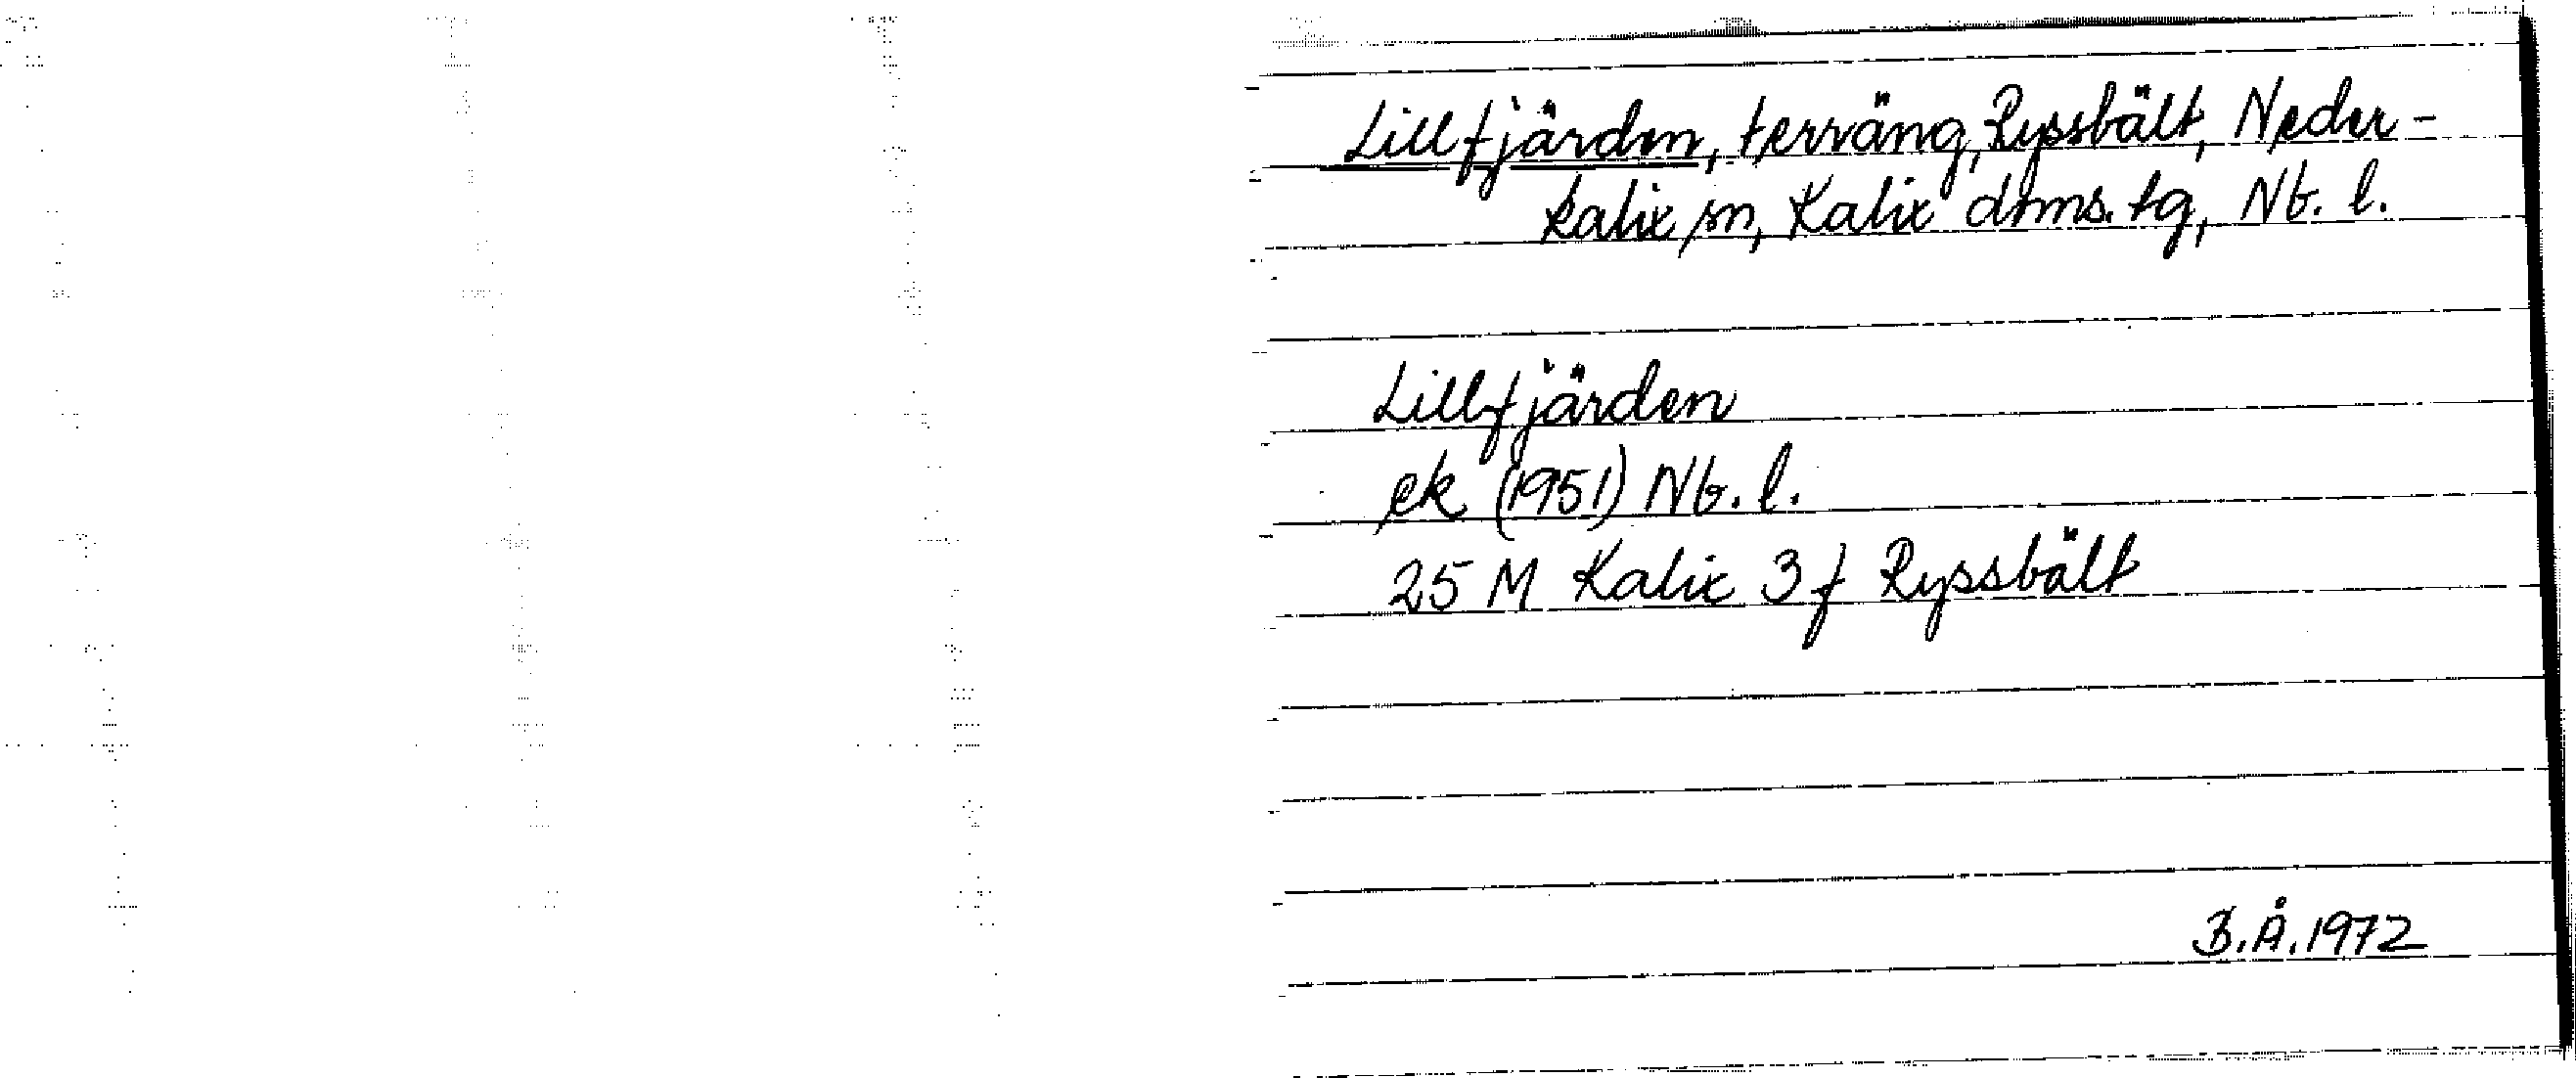 Lillfjärden, terräng, Ryssbält, Neder-
kalix sn, Kalix dms. tg, Nb. l.
Lillfjärden
ek (1951) Nb. l.
25 M Kalix 3 f Ryssbält
B.Å. 1972